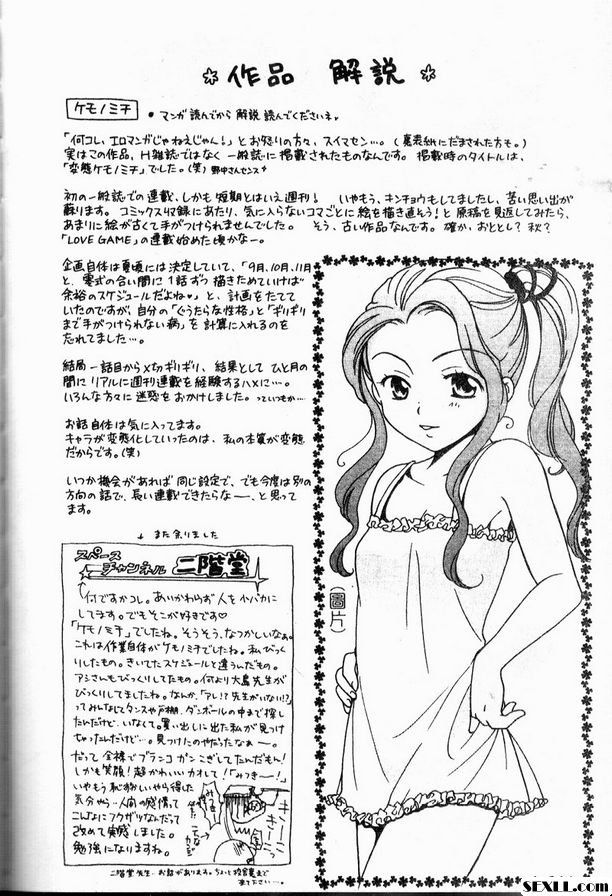 * 作品 解説 *
ケモノミチ
• マンガ読んでから解説読んでくださいネ。
「何コレ、エロマンガじゃねえじゃん!」とお怒りの方々、スイマセン…。(裏表紙にだまされた方も。)
実はこの作品、H雑誌ではなく一般誌に掲載されたものなんです。掲載時のタイトルは、
「変態ケモノミチ」でした。(笑) 野中さんセンス
初の一般誌での連載、しかも短期とはいえ週刊! いやもう、キンチョウもしてましたし、苦い思い出が
蘇ります。コミックス収録にあたり、気に入らないコマごとに絵を描き直そう!と原稿を見返してみたら、
あまりに絵が古くて手がつけられませんでした。 そう、古い作品なんです。確か、おととし?秋?
「LOVE GAME」の連載始めた頃かなー。
企画自体は夏頃には決定していて、「9月、10月、11月
と、零式の合い間に1話ずつ描きためていけば
余裕のスケジュールだよね♥」と、計画をたてて
いたのですが、自分の「ぐうたらな性格」と「ギリギリ
まで手がつけられない病」を計算に入れるのを
忘れてました…。
結局一話目から〆切ギリギリ、結果としてひと月の
間にリアルに週刊連載を経験するハメに…。
いろんな方々に迷惑をおかけしました。っていつもか…
お話自体は気に入ってます。
キャラが変態化していったのは、私の本質が変態
だからです。(笑)
いつか機会があれば同じ設定で、でも今度は別の
方向の話で、長い連載できたらなー、と思って
ます。
↓ また余りました
スペース
チャンネル 二階堂
何ですかコレ。あいかわらず人を小バカに
してます。でもそこが好きです♡
「ケモノミチ」でしたね。そうそう、なつかしいなぁ。
これは作業自体がケモノミチでしたね。私びっく
りしたもの。きいてたスケジュールと違うんだもの。
アシさんもびっくりしてたもの。何より大島先生が
びっくりしてましたね。なんか、「アレ!?先生がいない!?」
ってみんなしてタンスや戸棚、ダンボールの中まで探し
たんだけど、いなくて。買い出しに出た私が見つけ
ちゃったんだけど…。見つけたのやだったなぁー。
だって全裸でブランコガンこぎしてたんだもん!
しかも笑顔!超かわいいカオして!「みつきー!」
いやもう恥ずかしいやら得した
気分やら…人間の感情って
こんなにフクザツなんだって
改めて実感しました。
勉強になりますね。
きーこ
きーこっ
二階堂先生、お話があります。ちょっと校舎裏まで
来て下さい…。
(圖片)
SEXLL.COM